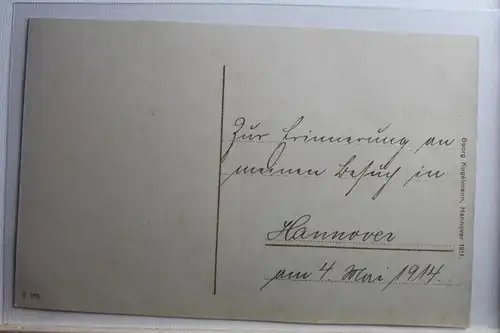 Zur Erinnerung an
meinen Besuch in
Hannover
am 4. Mai 1914.
Georg Kugelmann, Hannover 1911.